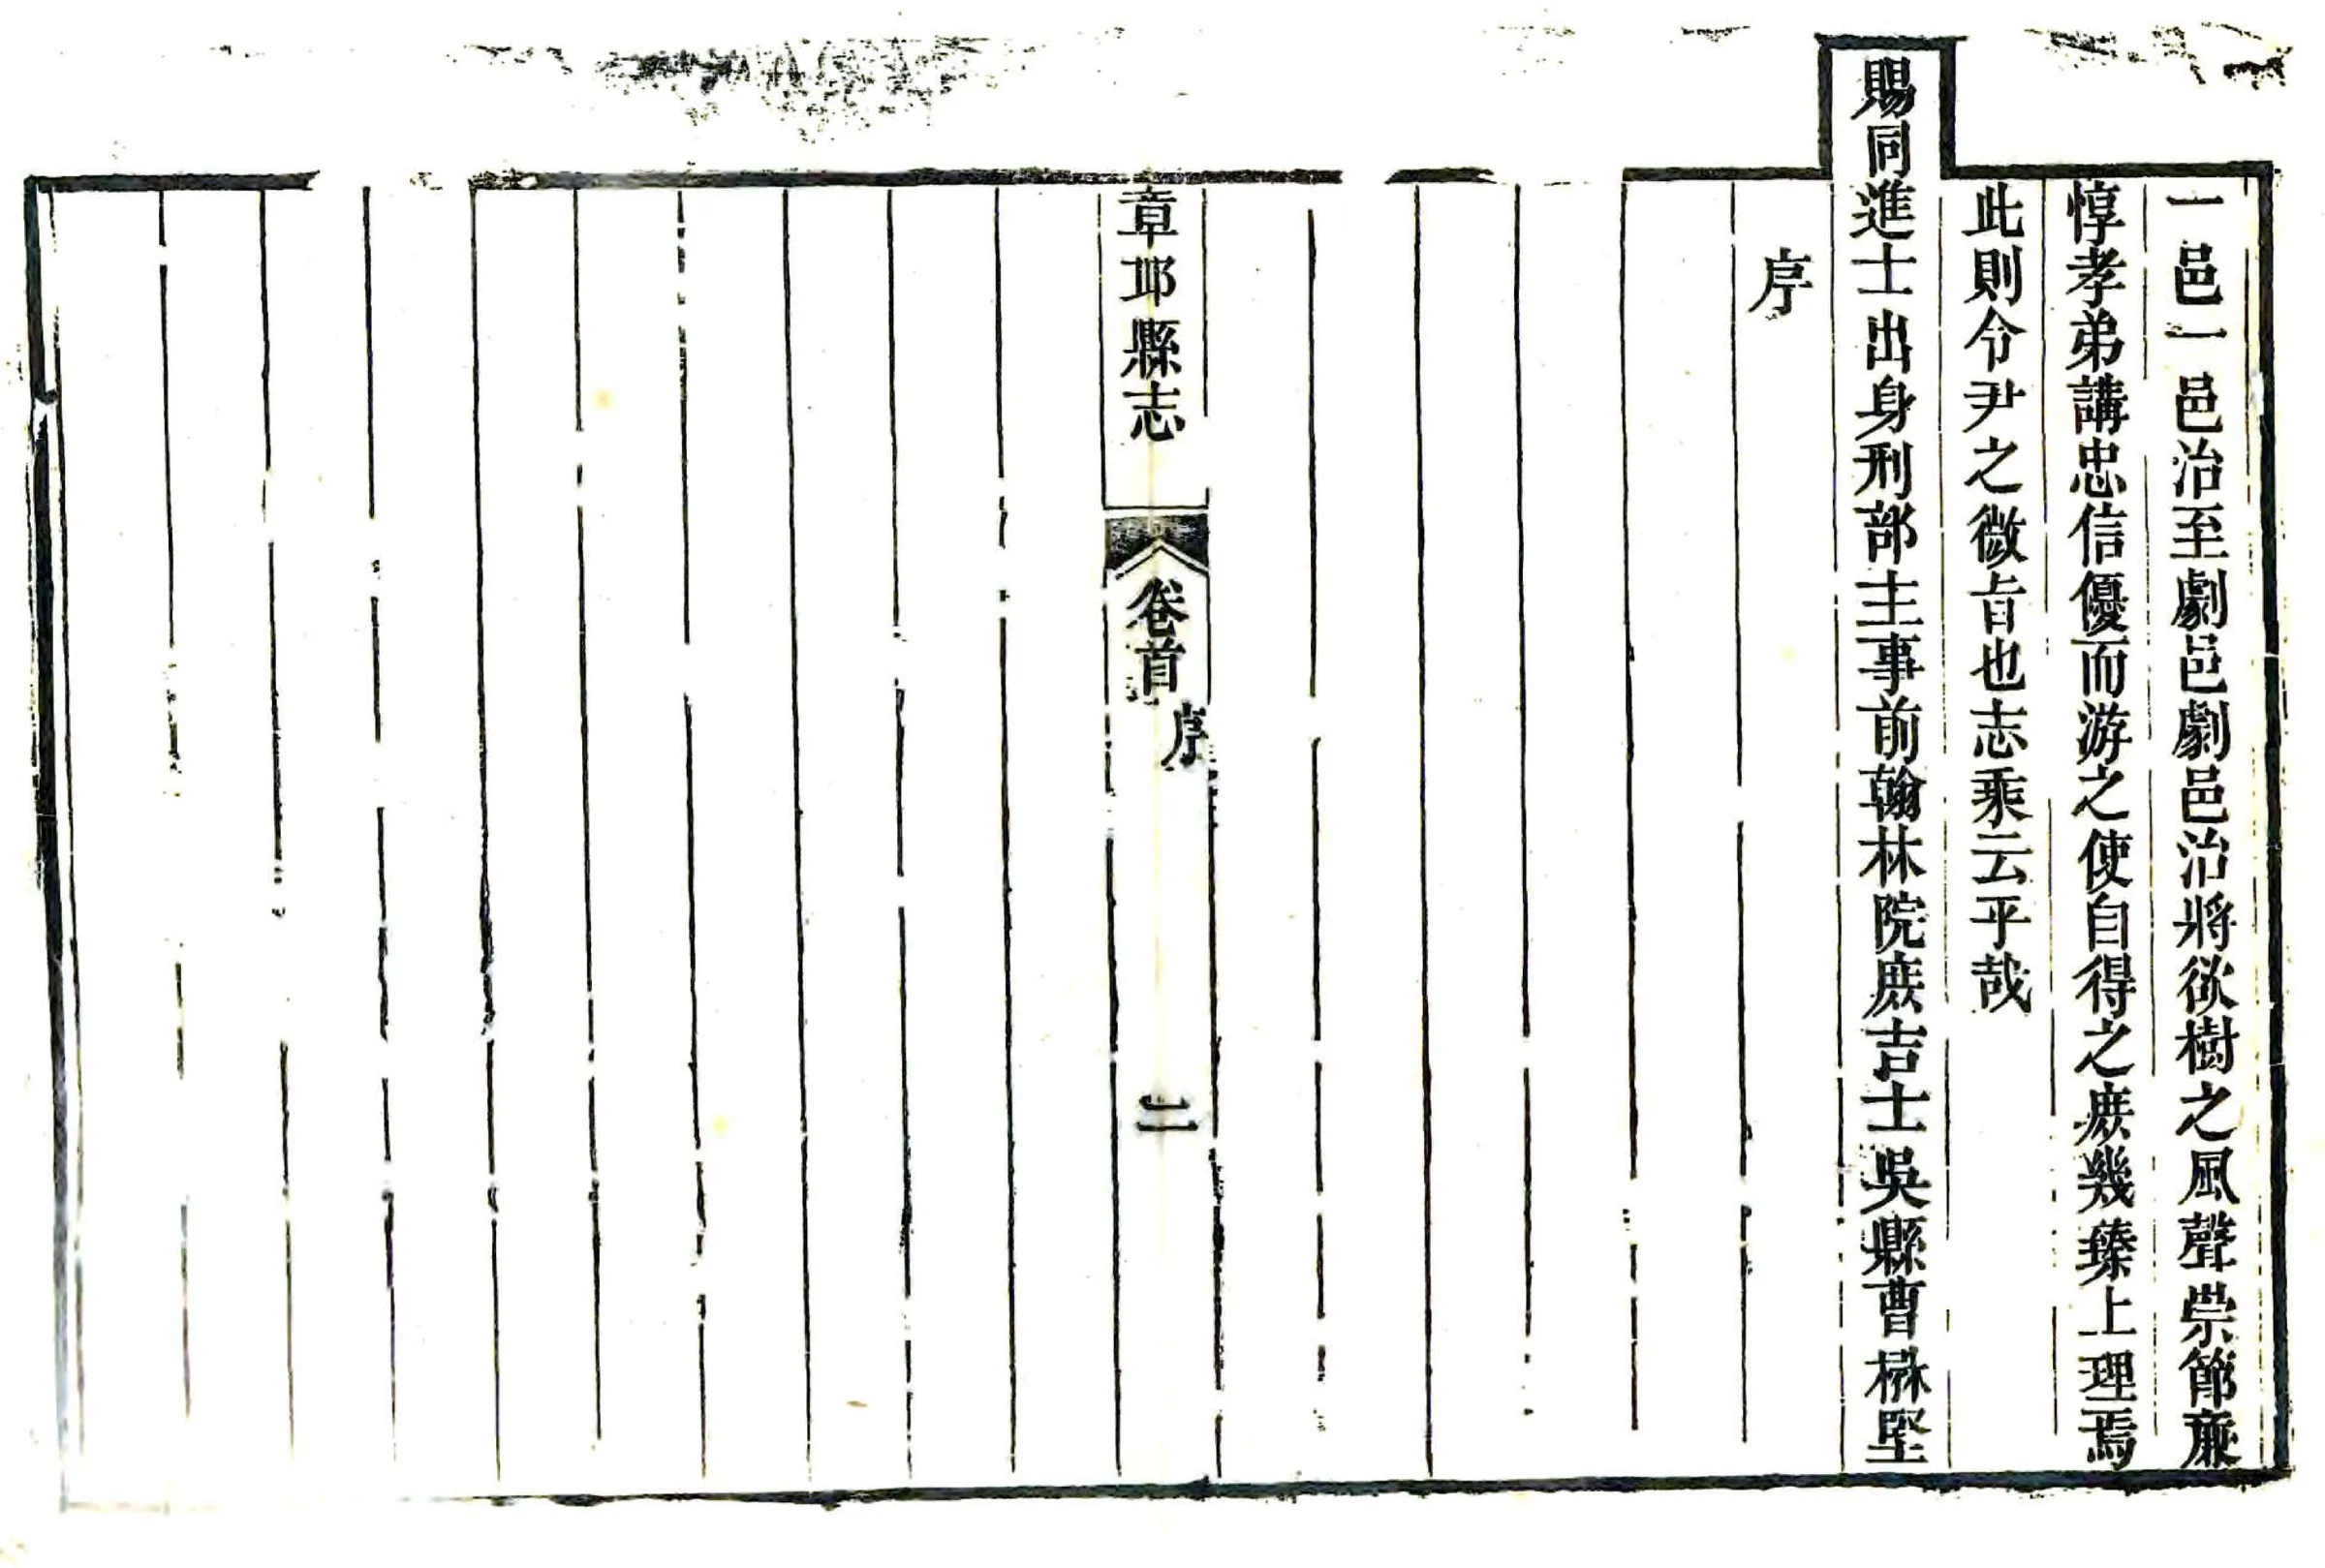 一邑一邑治至劇邑劇邑治將欲樹之風聲崇節廉
惇孝弟講忠信優而游之使自得之庶幾臻上理焉
此則令尹之微旨也志乘云乎哉
賜同進士出身刑部主事前翰林院庶吉士吳縣曹楙堅
序
章邱縣志
卷首
序
二